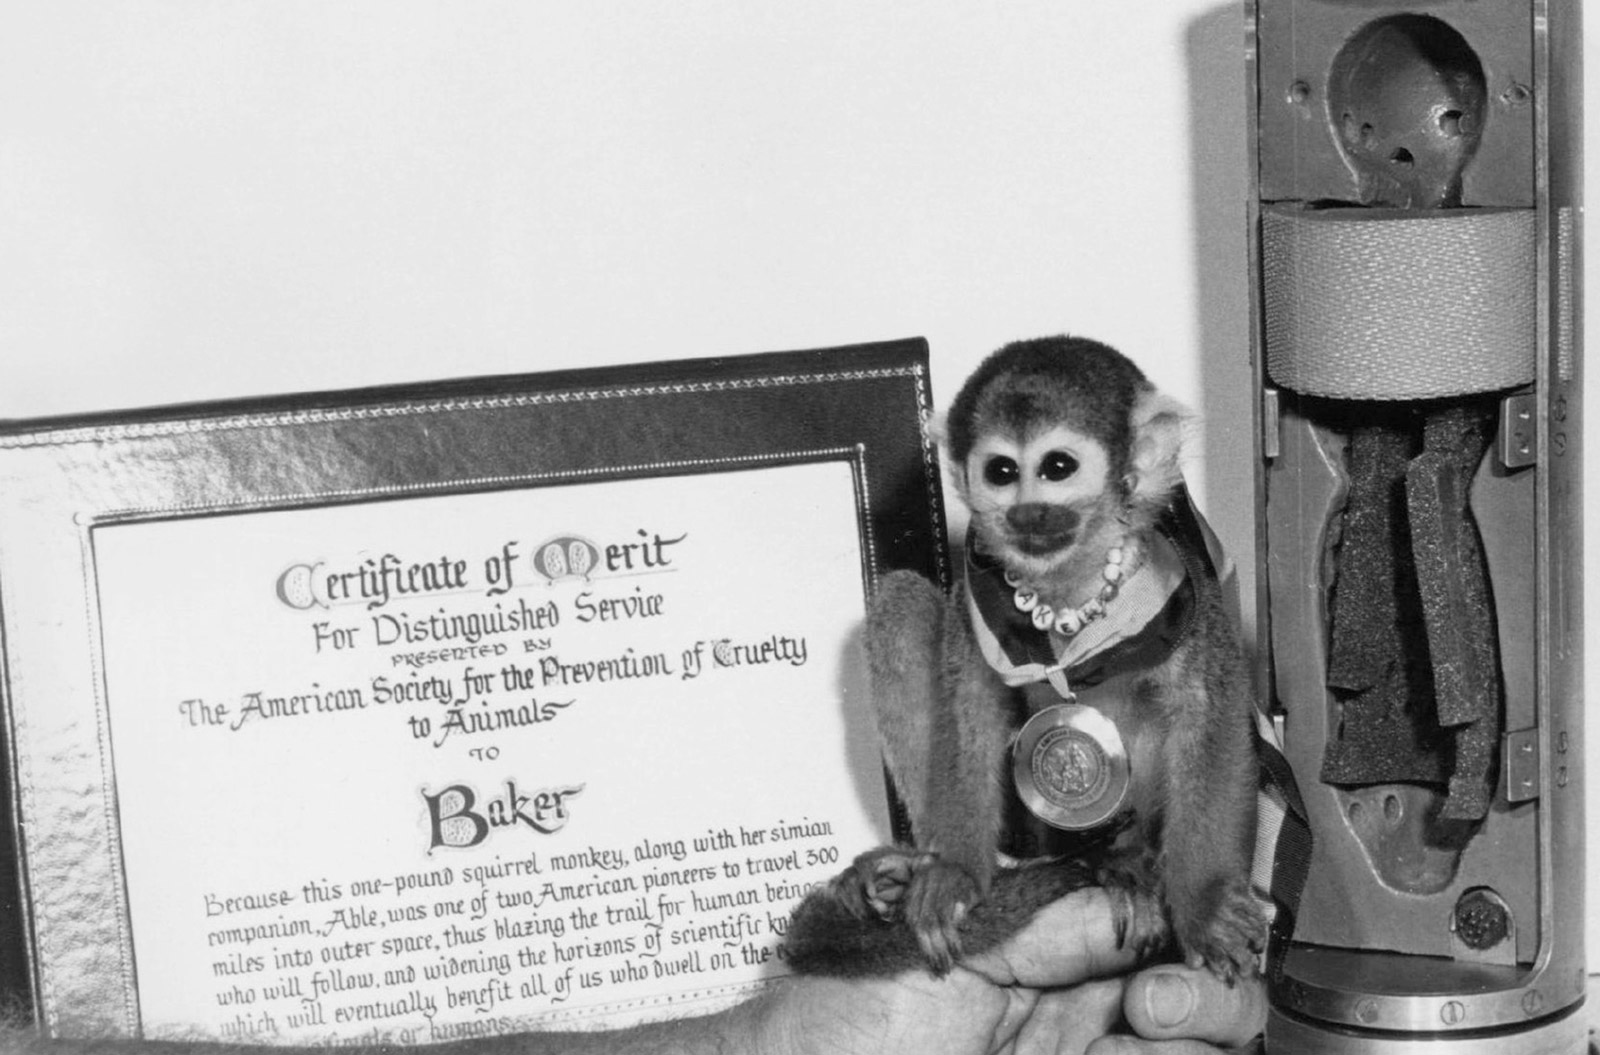 Certificate of Merit
For Distinguished Service
PRESENTED BY
The American Society for the Prevention of Cruelty
to Animals
TO
Baker
Because this one-pound squirrel monkey, along with her simian
companion, Able, was one of two American pioneers to travel 300
miles into outer space, thus blazing the trail for human beings
who will follow, and widening the horizons of scientific
which will eventually benefit all of us who dwell on the
or humans